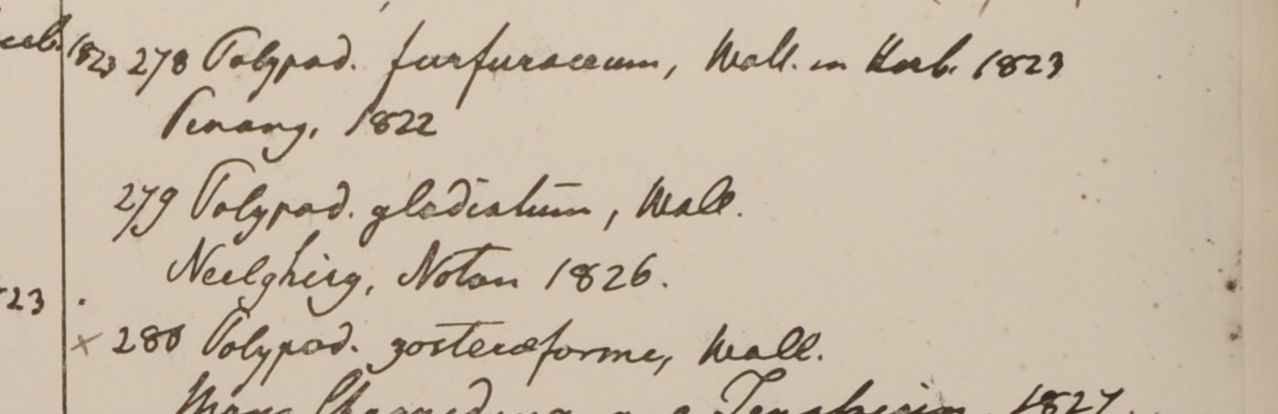 1823 278 Polypod. furfuraceum, Wall. in Herb. 1823
Penang, 1822
279 Polypod. gladiatum, Wall.
Neelgherg, Noton 1826.
23
× 280 Polypod. zosteræforme, Wall.
1827